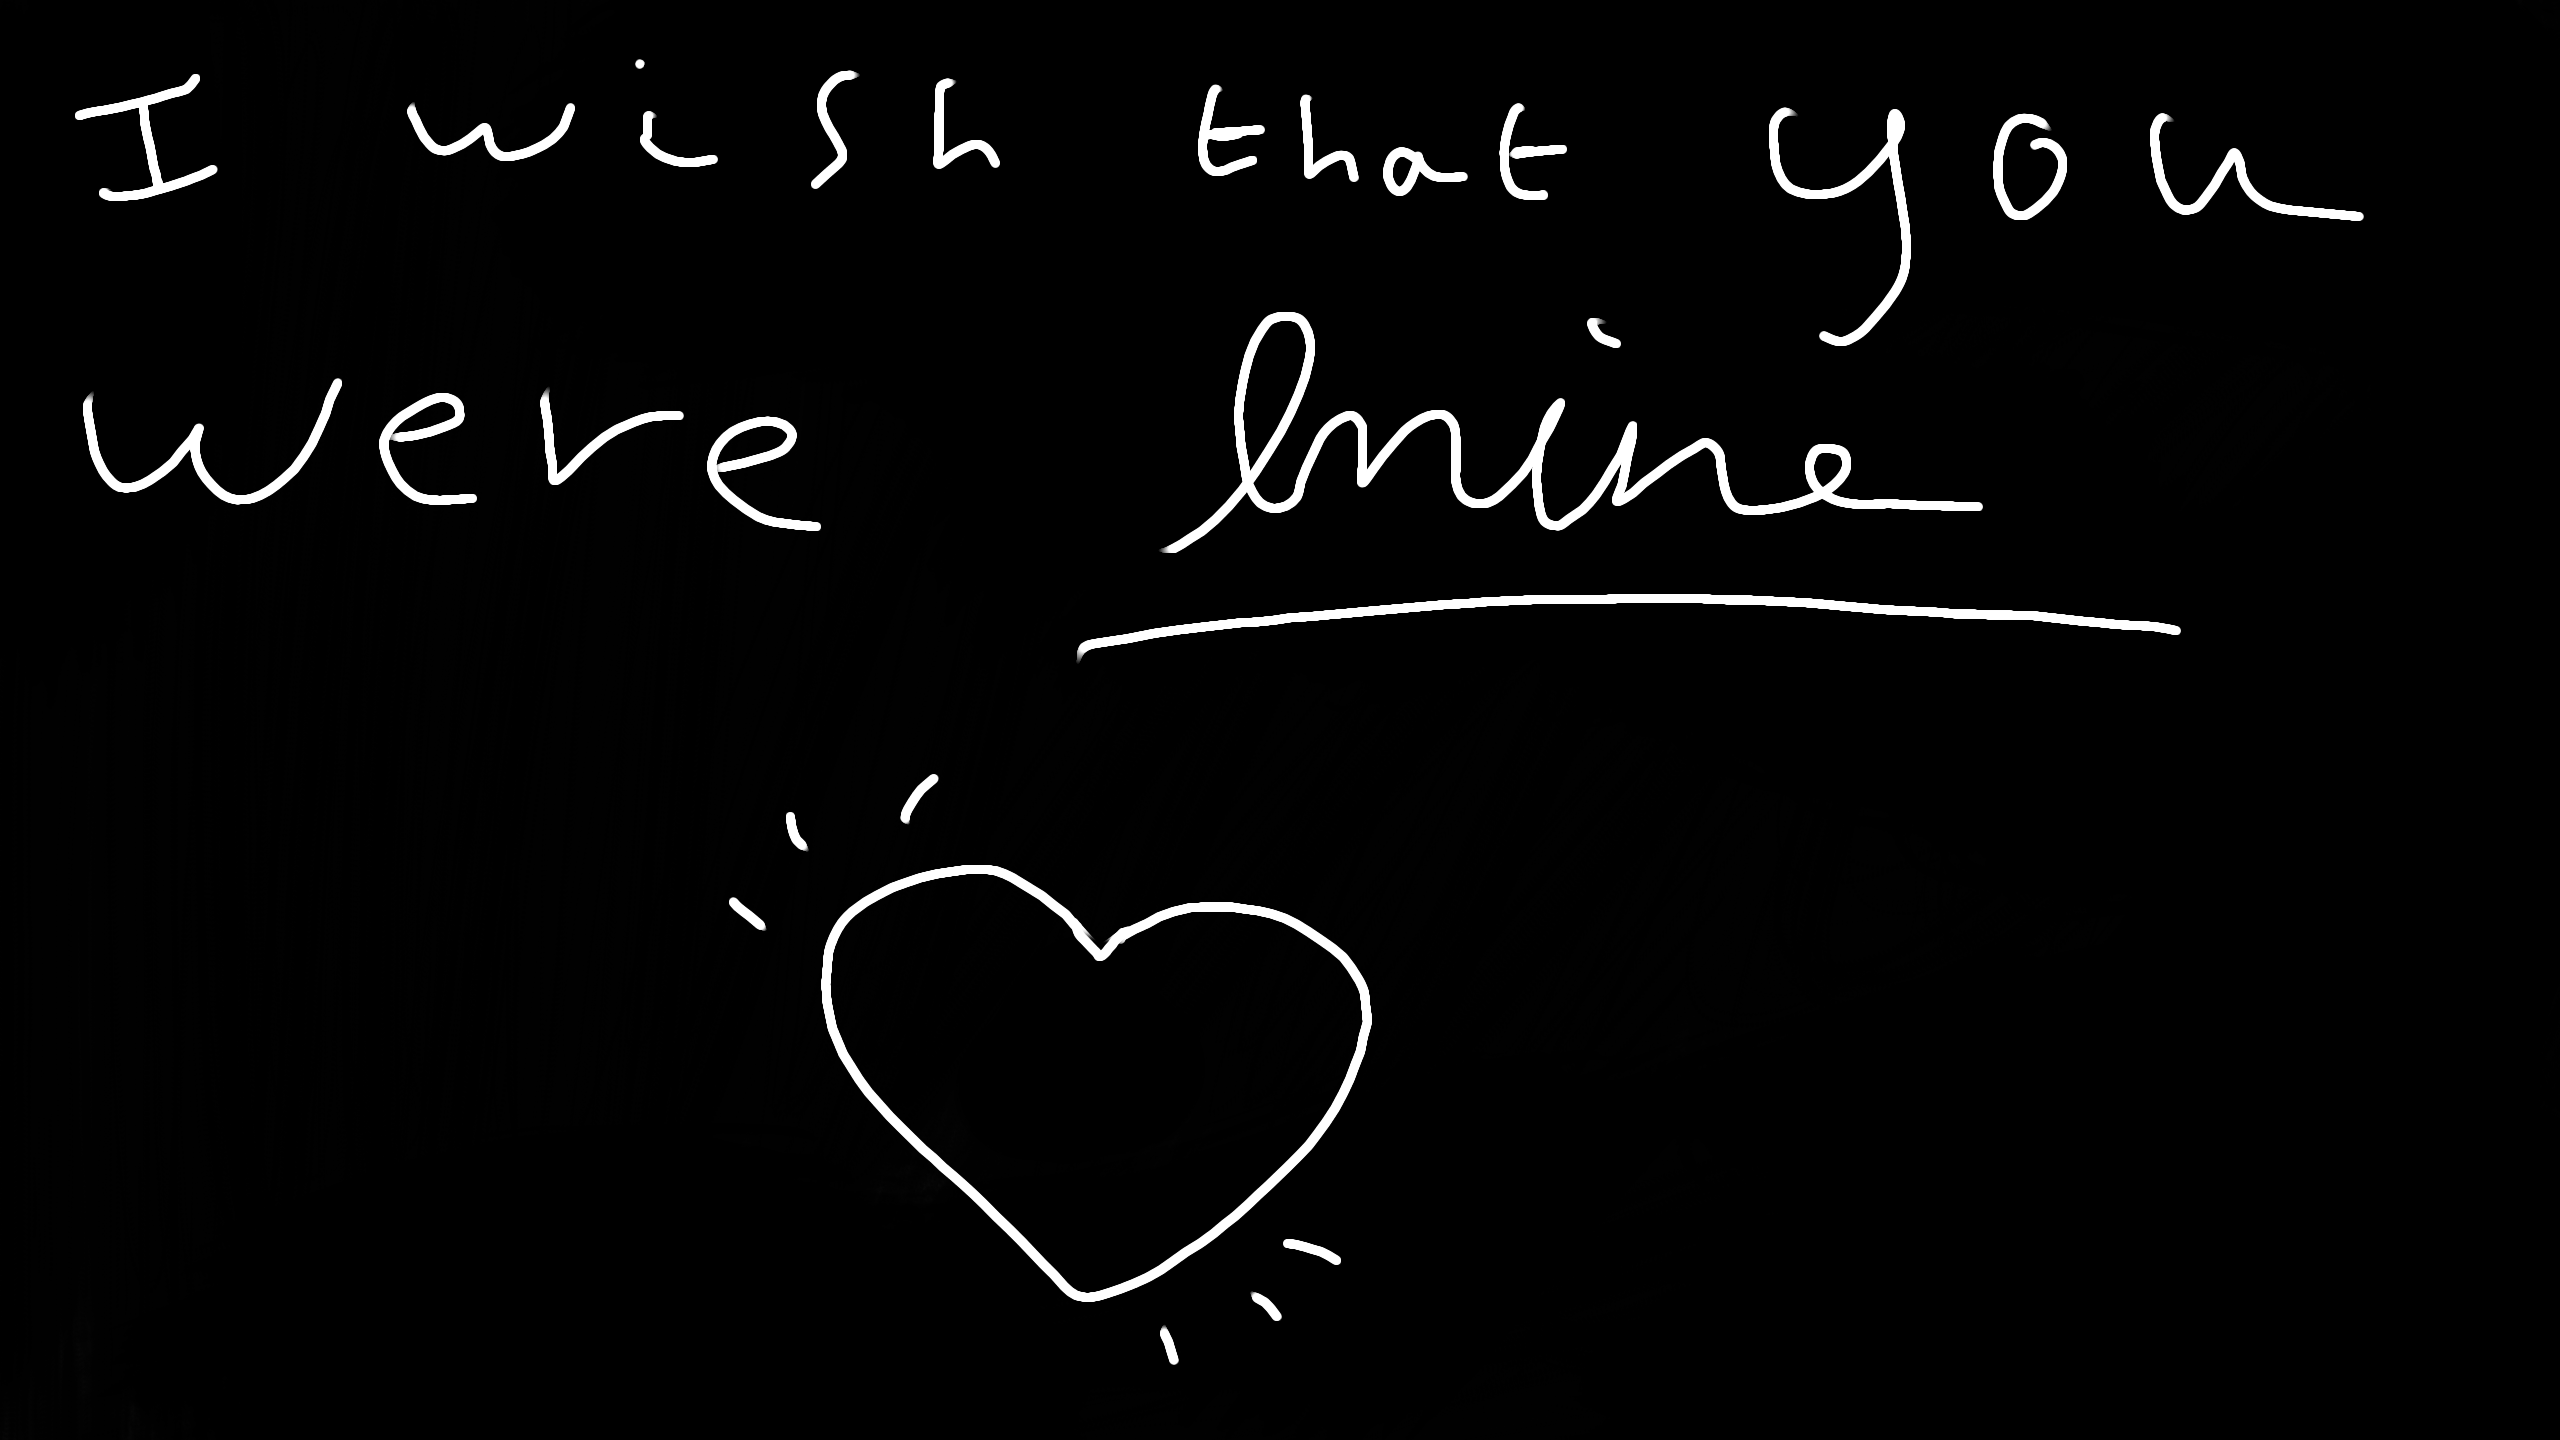 I wish that you
were mine